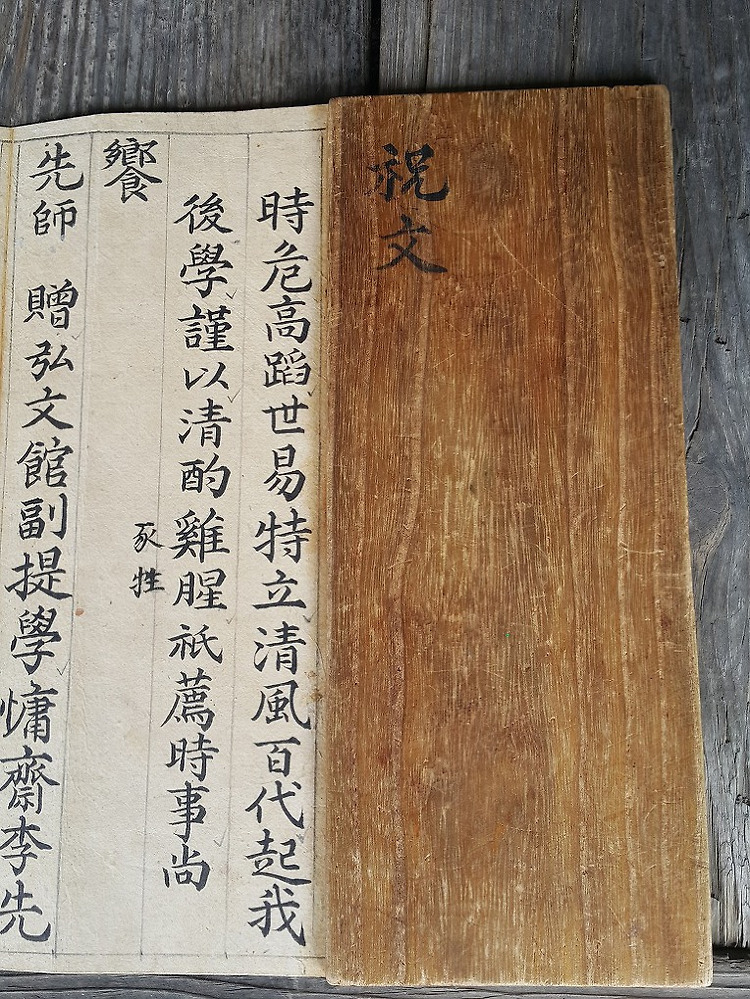 祝文
時危高蹈世易特立清風百代起我
後學謹以清酌雞腥祇薦時事尚
豕牲
饗
先師 贈弘文館副提學慵齋李先